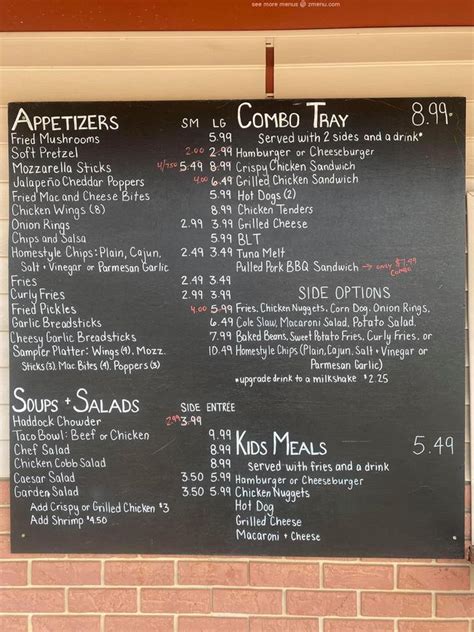 see more menus @ zmenu.com
APPETIZERS SM LG
Fried Mushrooms 5.99
Soft Pretzel 2.00 2.99
Mozzarella Sticks 4/7.50 5.49 8.99
Jalapeño Cheddar Poppers 4.00 6.49
Fried Mac and Cheese Bites 5.99
Chicken Wings (8) 8.99
Onion Rings 2.99 3.99
Chips and Salsa 5.99
Homestyle Chips: Plain, Cajun, 2.49 3.49
Salt + Vinegar or Parmesan Garlic
Fries 2.49 3.49
Curly Fries 2.99 3.99
Fried Pickles 4.00 5.99
Garlic Breadsticks 6.49
Cheesy Garlic Breadsticks 7.99
Sampler Platter: Wings (4), Mozz. 10.49
Sticks (3), Mac Bites (4), Poppers (3)
SOUPS + SALADS SIDE ENTRÉE
Haddock Chowder 2.99 3.99
Taco Bowl: Beef or Chicken 9.99
Chef Salad 8.99
Chicken Cobb Salad 8.99
Caesar Salad 3.50 5.99
Garden Salad 3.50 5.99
Add Crispy or Grilled Chicken $3
Add Shrimp $4.50
COMBO TRAY 8.99*
Served with 2 sides and a drink*
Hamburger or Cheeseburger
Crispy Chicken Sandwich
Grilled Chicken Sandwich
Hot Dogs (2)
Chicken Tenders
Grilled Cheese
BLT
Tuna Melt
Pulled Pork BBQ Sandwich → only $7.99 combo
SIDE OPTIONS
Fries, Chicken Nuggets, Corn Dog, Onion Rings,
Cole Slaw, Macaroni Salad, Potato Salad,
Baked Beans, Sweet Potato Fries, Curly Fries, or
Homestyle Chips (Plain, Cajun, Salt + Vinegar or
Parmesan Garlic)
*upgrade drink to a milkshake $2.25
KIDS MEALS 5.49
Served with fries and a drink
Hamburger or Cheeseburger
Chicken Nuggets
Hot Dog
Grilled Cheese
Macaroni + Cheese